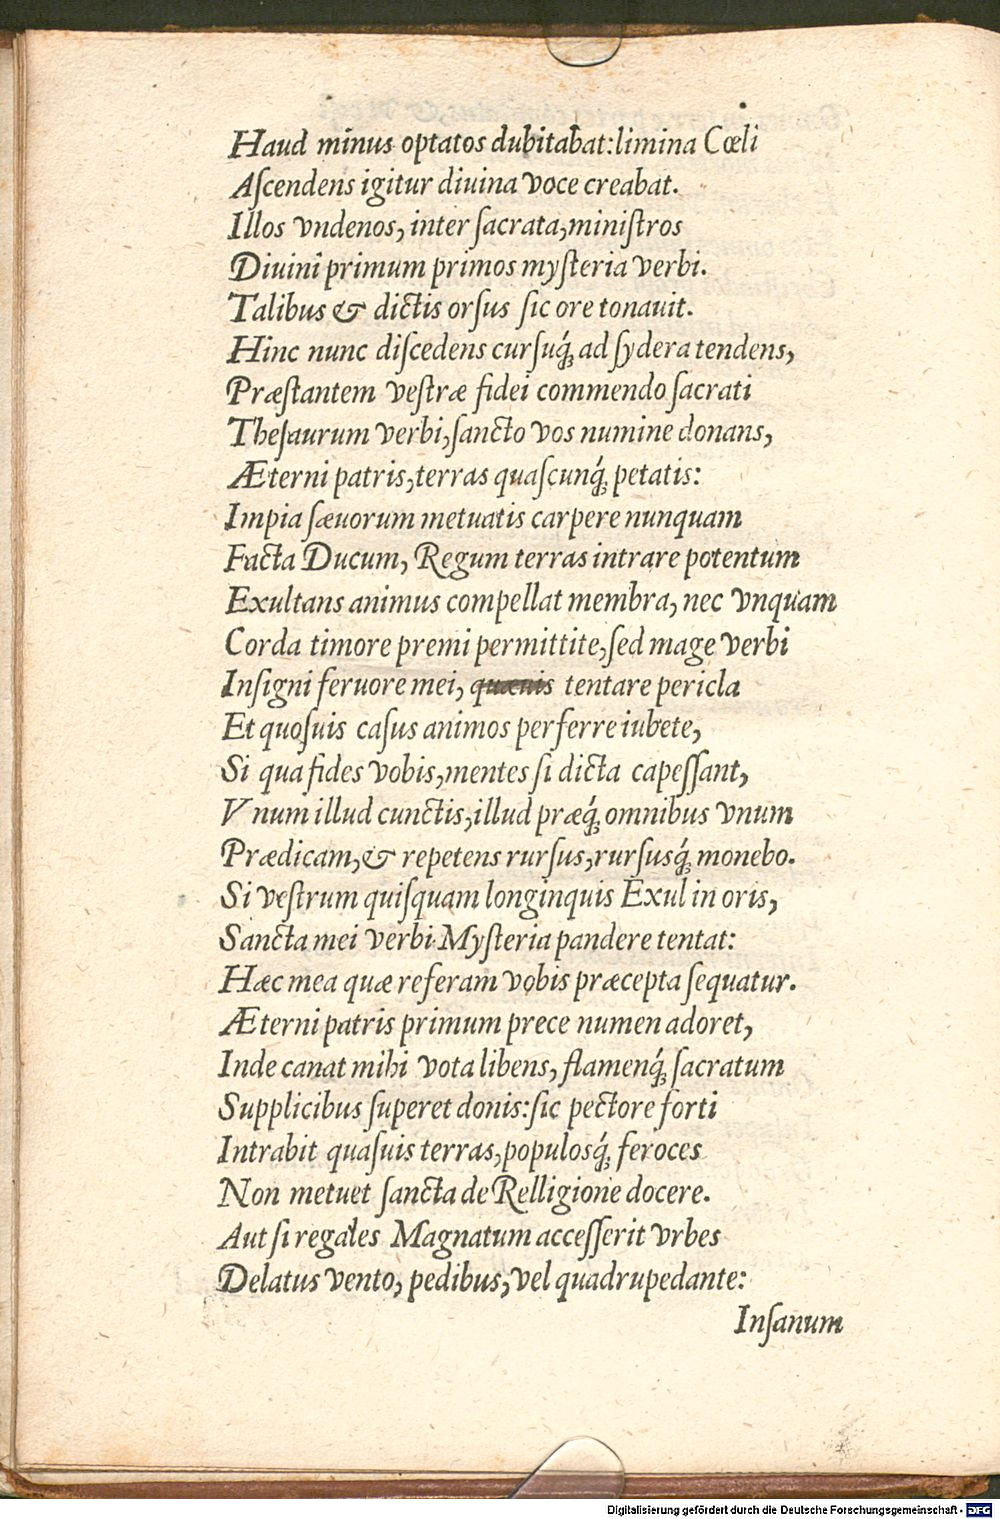 Haud minus optatos dubitabat:limina Cœli
Aſcendens igitur diuina voce creabat.
Illos vndenos, inter ſacrata,miniſtros
Diuini primum primos myſteria verbi.
Talibus & dictis orſus ſic ore tonauit.
Hinc nunc diſcedens curſuq́; ad ſydera tendens,
Præſtantem veſtræ fidei commendo ſacrati
Theſaurum verbi,ſancto vos numine donans,
Æterni patris,terras quaſcunq́; petatis:
Impia ſæuorum metuatis carpere nunquam
Facta Ducum, Regum terras intrare potentum
Exultans animus compellat membra, nec vnquam
Corda timore premi permittite,ſed mage verbi
Inſigni feruore mei, quæuis tentare pericla
Et quoſuis caſus animos perferre iubete,
Si qua fides vobis,mentes ſi dicta capeſſant,
Vnum illud cunctis,illud præq́; omnibus vnum
Prædicam,& repetens rurſus,rurſusq́; monebo.
Si veſtrum quiſquam longinquis Exul in oris,
Sancta mei verbi Myſteria pandere tentat:
Hæc mea quæ referam vobis præcepta ſequatur.
Æterni patris primum prece numen adoret,
Inde canat mihi vota libens, flamenq́; ſacratum
Supplicibus ſuperet donis:ſic pectore forti
Intrabit quaſuis terras,populosq́; feroces
Non metuet ſancta de Relligione docere.
Aut ſi regales Magnatum acceſſerit vrbes
Delatus vento, pedibus,vel quadrupedante:
Inſanum
Digitalisierung gefördert durch die Deutsche Forschungsgemeinschaft - DFG